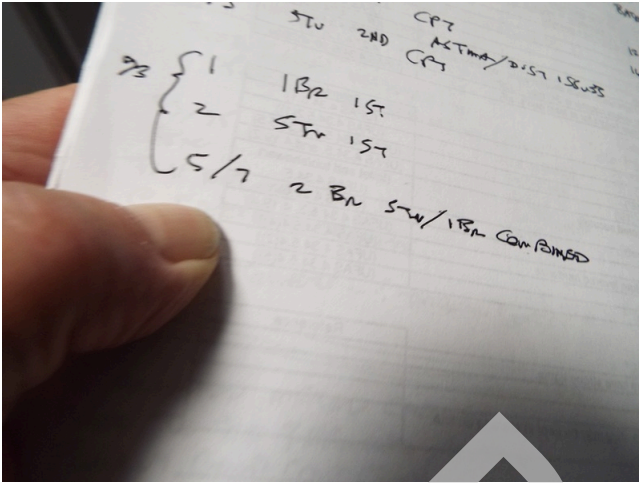 CPT
STU 2ND ASTMA/DUST ISSUES
CPT
9/3 { 1 1BR 1ST
2 STU 1ST
5/7 2 BR STU/1BR COMBINED